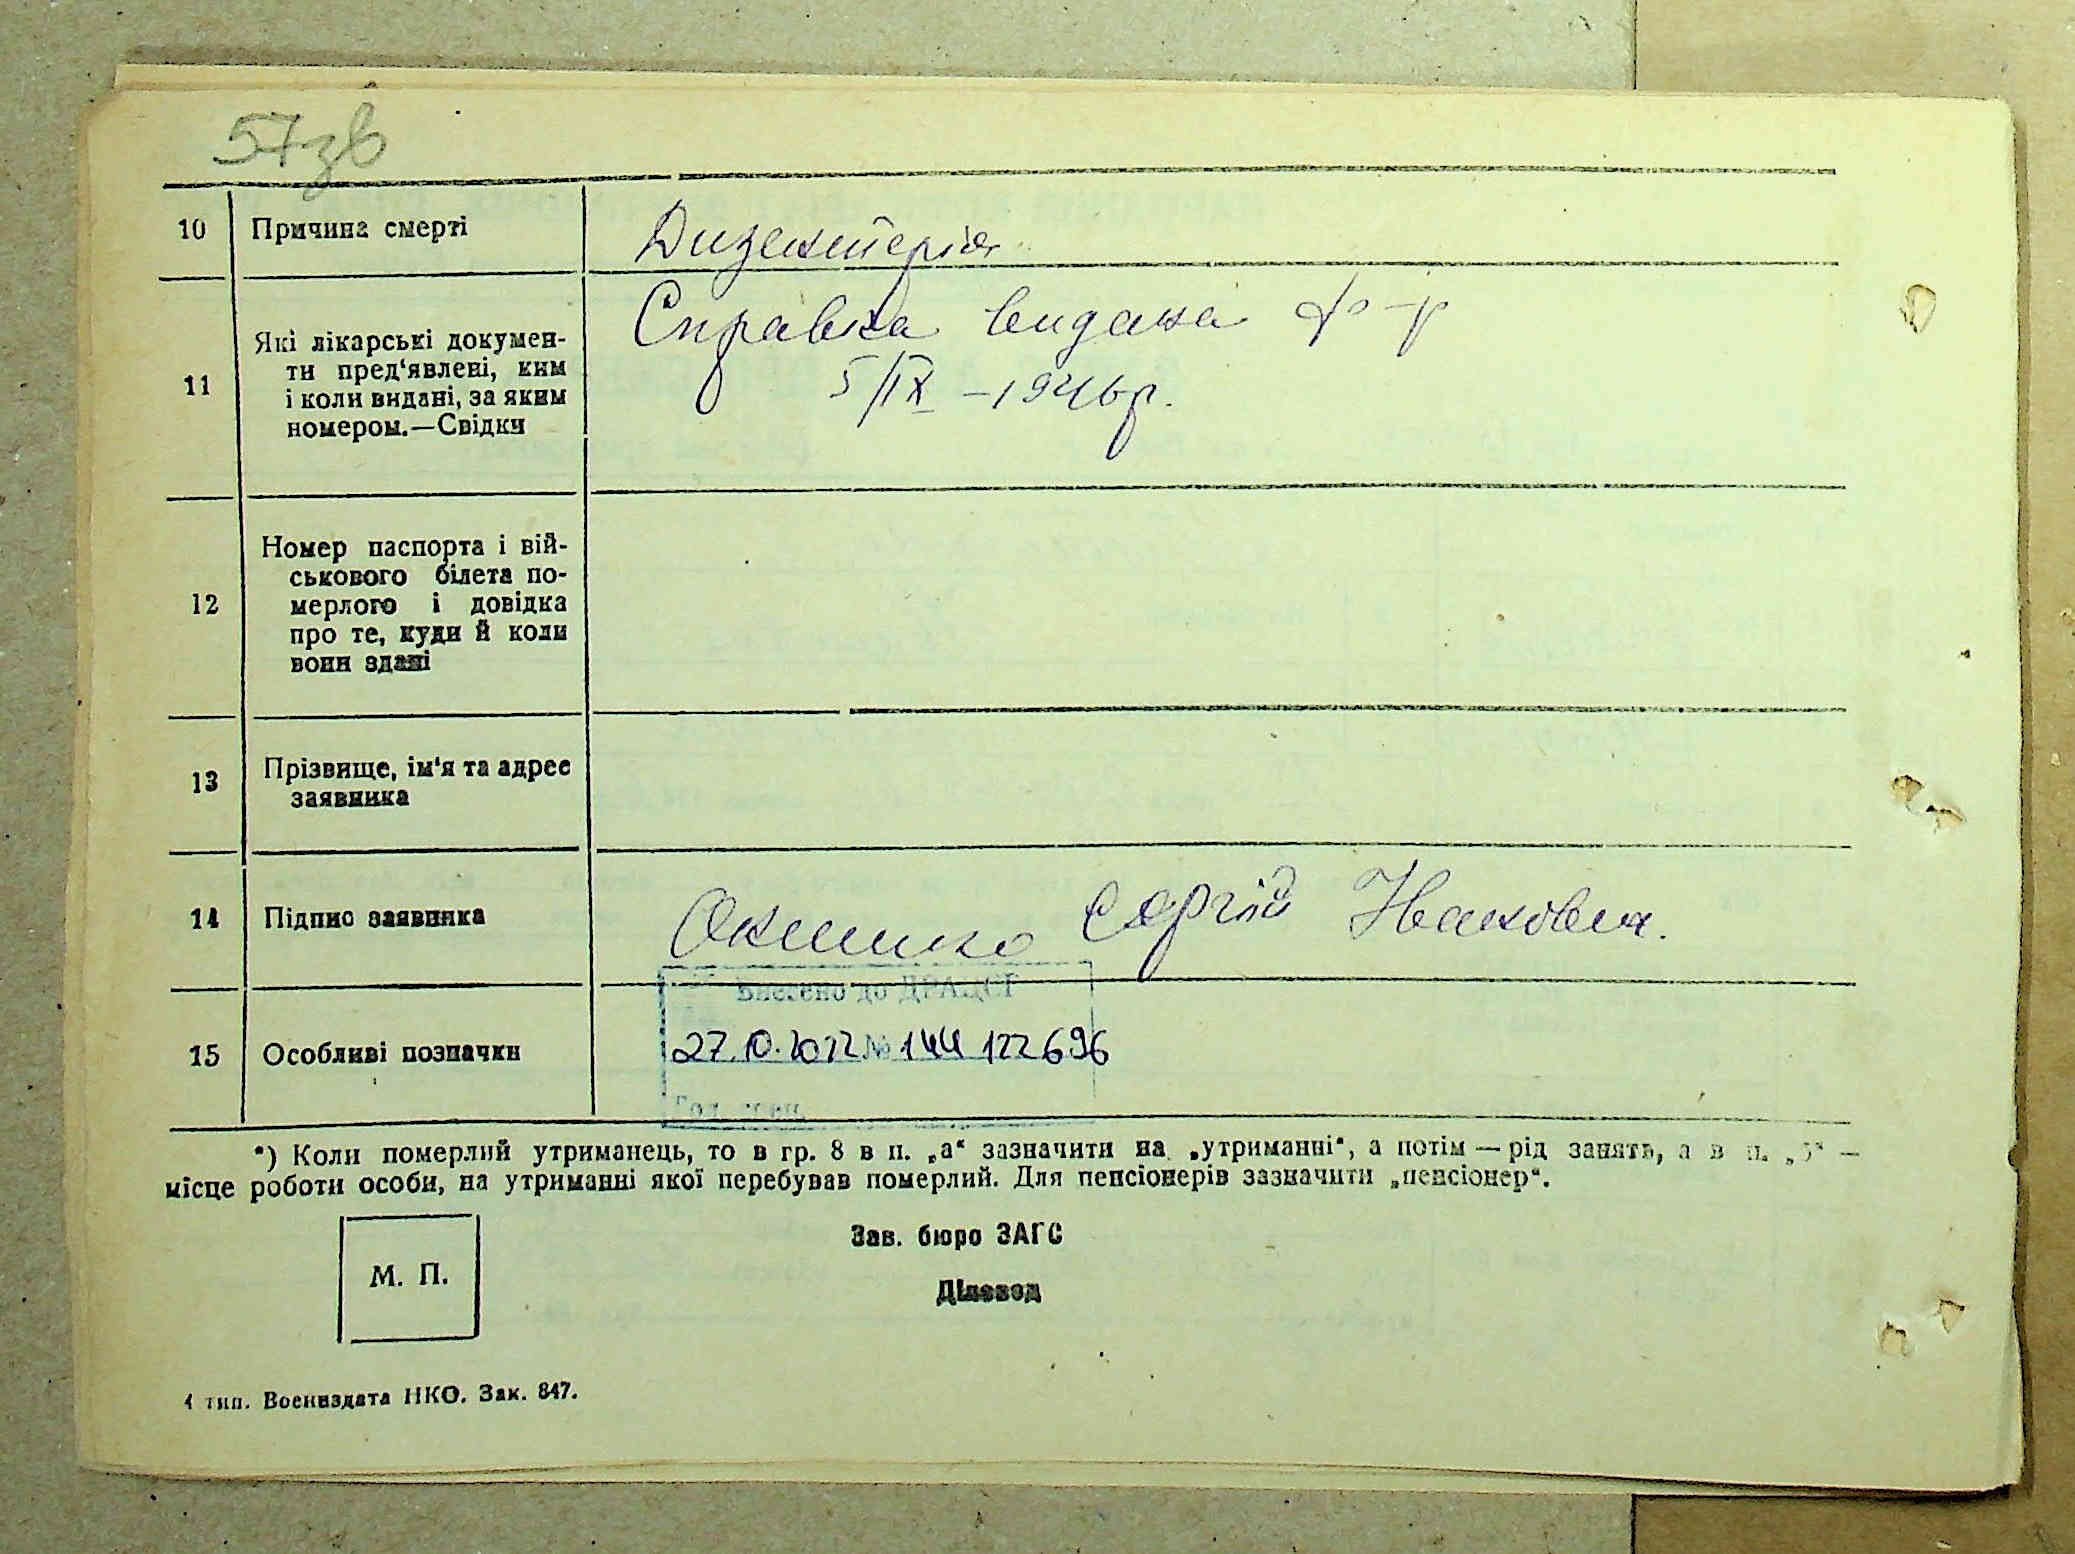 57зв
10 Причина смерті Дизентерія
11 Які лікарські докумен-
ти пред‘явлені, ким
і коли видані, за яким
номером.—Свідки
Справка видана
5/IX – 1946 р.
12 Номер паспорта і вій-
ськового білета по-
мерлого і довідка
про те, куди й коли
вони здані
13 Прізвище, ім‘я та адрес
заявника
14 Підпис заявника Сергій Иванович.
15 Особливі позначки
Внесено до ДРАЦСГ
27.10.2022 № 144 122696
*) Коли померлий утриманець, то в гр. 8 в п. „а“ зазначити на „утриманні“, а потім — рід занять, а в п. „б“ —
місце роботи особи, на утриманні якої перебував померлий. Для пенсіонерів зазначити „пенсіонер“.
Зав. бюро ЗАГС
М. П.
Діловод
4 тип. Воениздата НКО. Зак. 847.